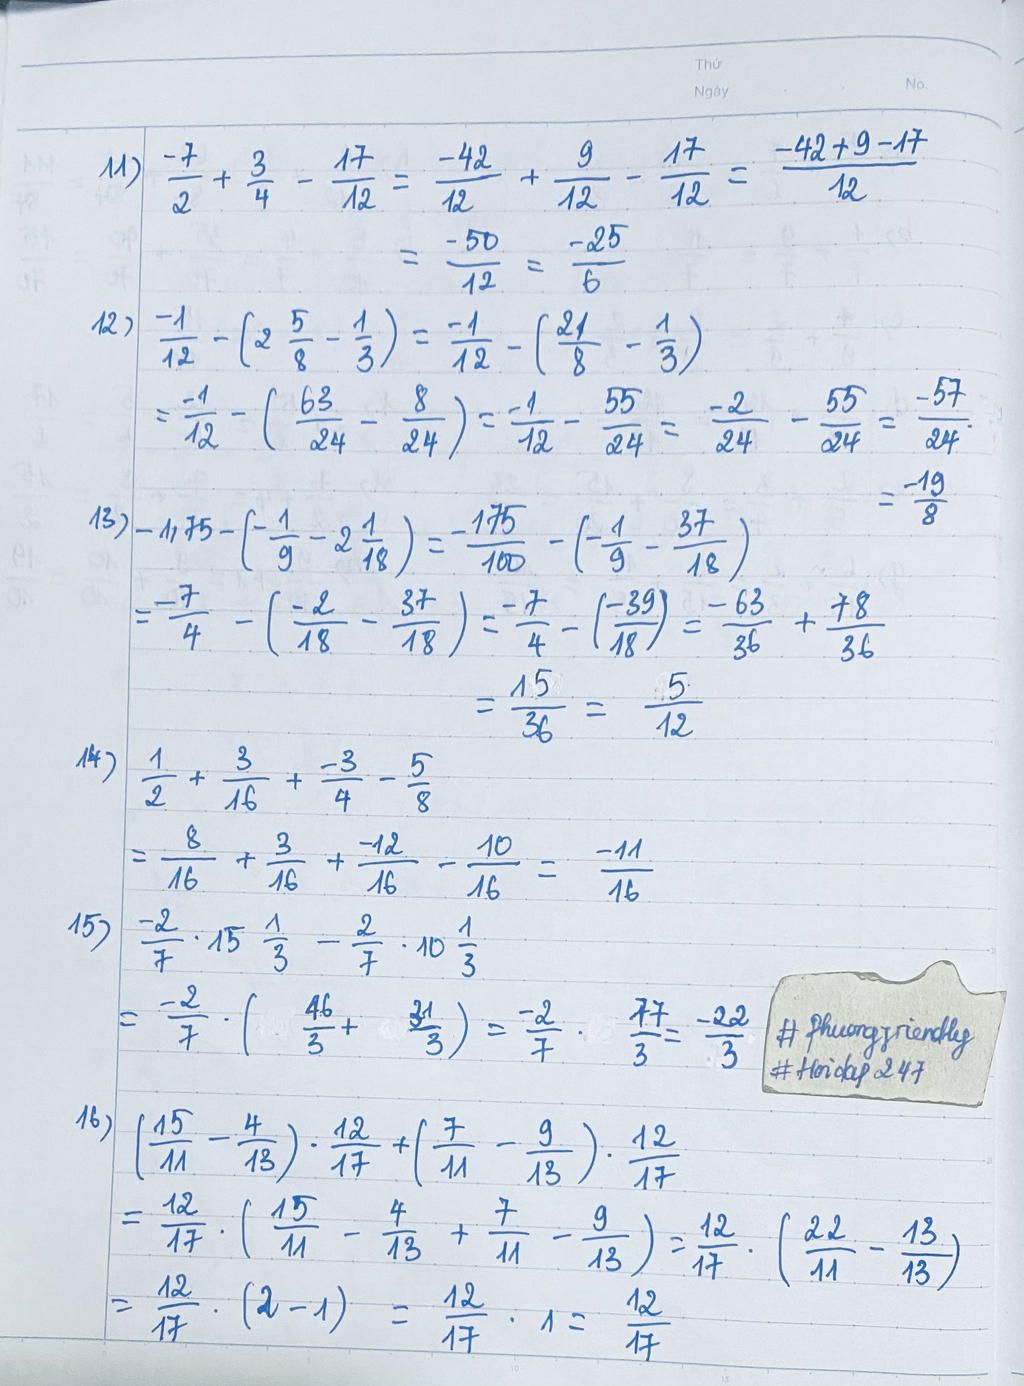 Thứ
Ngày No.
11) -7/2 + 3/4 - 17/12 = -42/12 + 9/12 - 17/12 = (-42+9-17)/12
= -50/12 = -25/6
12) -1/12 - (2 5/8 - 1/3) = -1/12 - (21/8 - 1/3)
= -1/12 - (63/24 - 8/24) = -1/12 - 55/24 = -2/24 - 55/24 = -57/24
= -19/8
13) -1,75 - (-1/9 - 2 1/18) = -175/100 - (-1/9 - 37/18)
= -7/4 - (-2/18 - 37/18) = -7/4 - (-39/18) = -63/36 + 78/36
= 15/36 = 5/12
14) 1/2 + 3/16 + -3/4 - 5/8
= 8/16 + 3/16 + -12/16 - 10/16 = -11/16
15) -2/7 · 15 1/3 - 2/7 · 10 1/3
= -2/7 · (46/3 + 31/3) = -2/7 · 77/3 = -22/3
# Phuongfriendly
# Hoidap 247
16) (15/11 - 4/13) · 12/17 + (7/11 - 9/13) · 12/17
= 12/17 · (15/11 - 4/13 + 7/11 - 9/13) = 12/17 · (22/11 - 13/13)
= 12/17 · (2 - 1) = 12/17 · 1 = 12/17